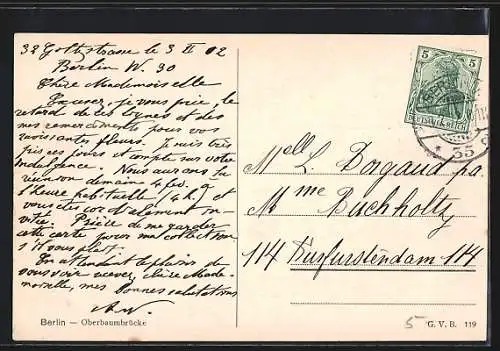 32 Goltzstrasse le 3 II 02
Berlin W. 30
Chère Mademoiselle
Excusez, je vous prie, le
retard de ces lignes et des
mes remerciements pour vos
ravissantes fleurs. Je suis très
prise ces jours et compte sur votre
indulgence. Nous aurons la
réunion demaine 4 fev. à
l'heure habituelle (4 h.) et
vous êtes cordialement in-
vitée. Prière de me garder
cette carte pour ma collection
s'il vous plaît.
En attendant le plaisir de
vous voir recevez, chère Made-
moiselle, mes bonnes salutations
Mell L. Dorgaud p.a.
Mme Buchholtz
114 Kurfürstendam 114
5
DEUTSCHES REICH
Berlin — Oberbaumbrücke
5
G. V. B. 119